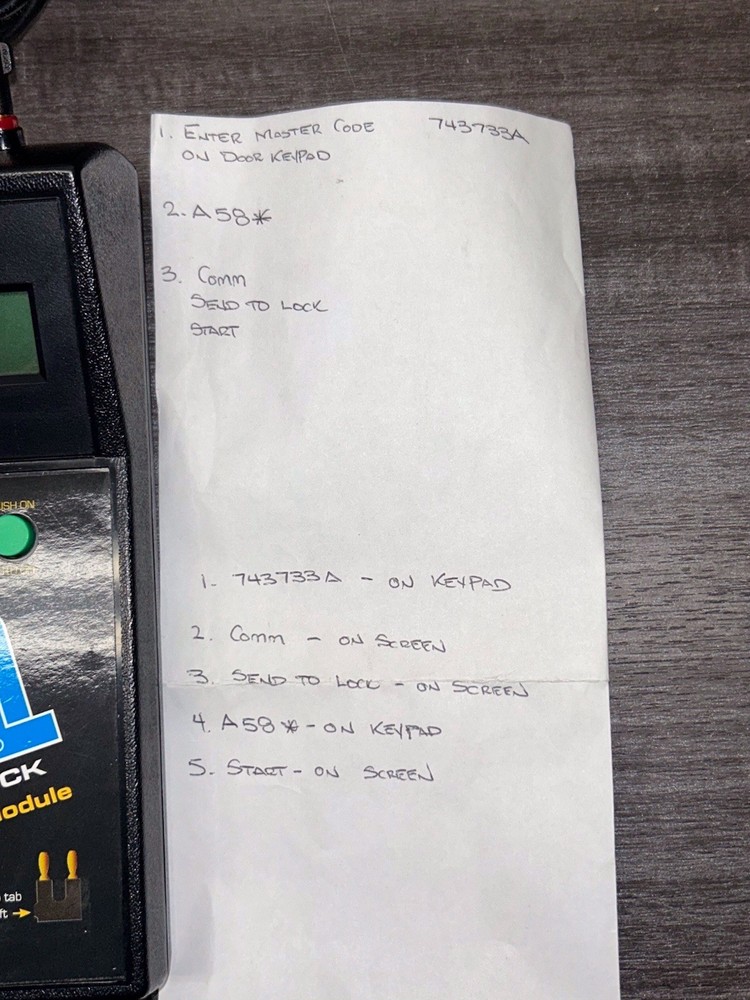 1. ENTER MASTER CODE 743733A
ON DOOR KEYPAD
2. A58*
3. Comm
SEND TO LOCK
START
USH ON
1
CK
odule
tab
ft
1- 743733A - ON KEYPAD
2. Comm - ON SCREEN
3. SEND TO LOCK - ON SCREEN
4. A58* - ON KEYPAD
5. START - ON SCREEN